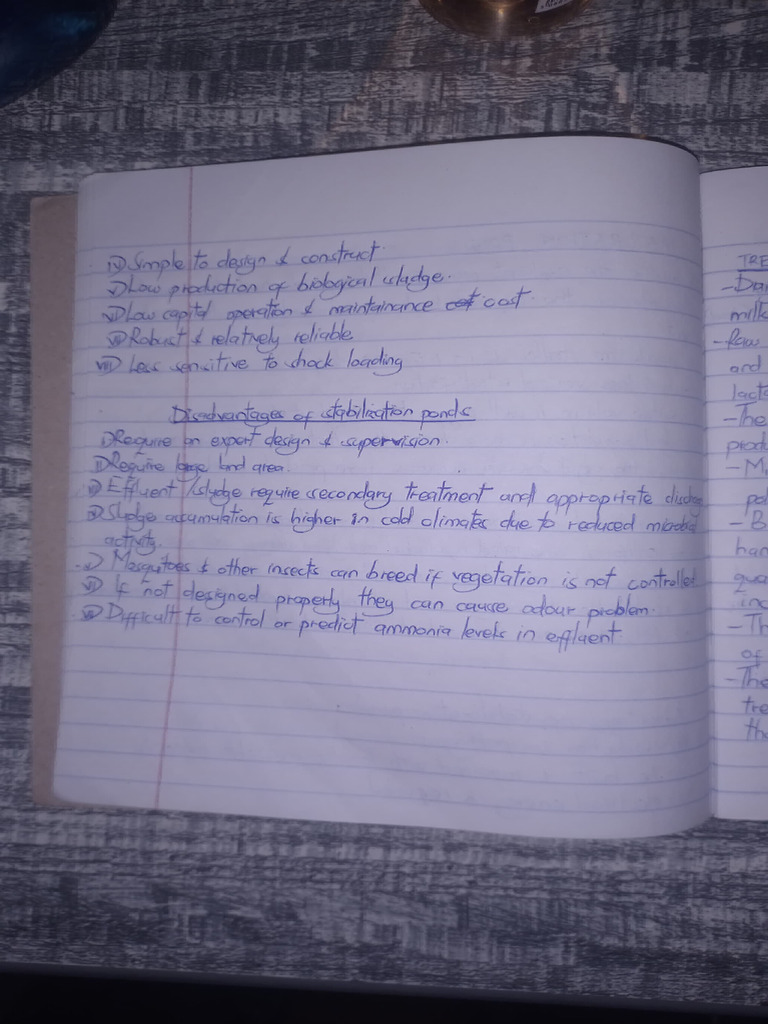 iv) Simple to design & construct.
v) Low production of biological sludge.
vi) Low capital operation & maintainance cost
vii) Robust & relatively reliable
viii) Less sensitive to shock loading
Disadvantages of stabilization ponds
i) Require an expert design & supervision.
ii) Require large land area.
iii) Effluent /sludge require secondary treatment and appropriate
iv) Sludge accumulation is higher in cold climates due to reduced microbial
activity.
v) Mosquitoes & other insects can breed if vegetation is not controlled
vi) If not designed properly they can cause odour problem.
vii) Difficult to control or predict ammonia levels in effluent
TRE
-Dai
milk
- Raw
and
lacto
-The
produ
- M
pol
- B
han
qua
inc
- Th
of
-The
tre
th